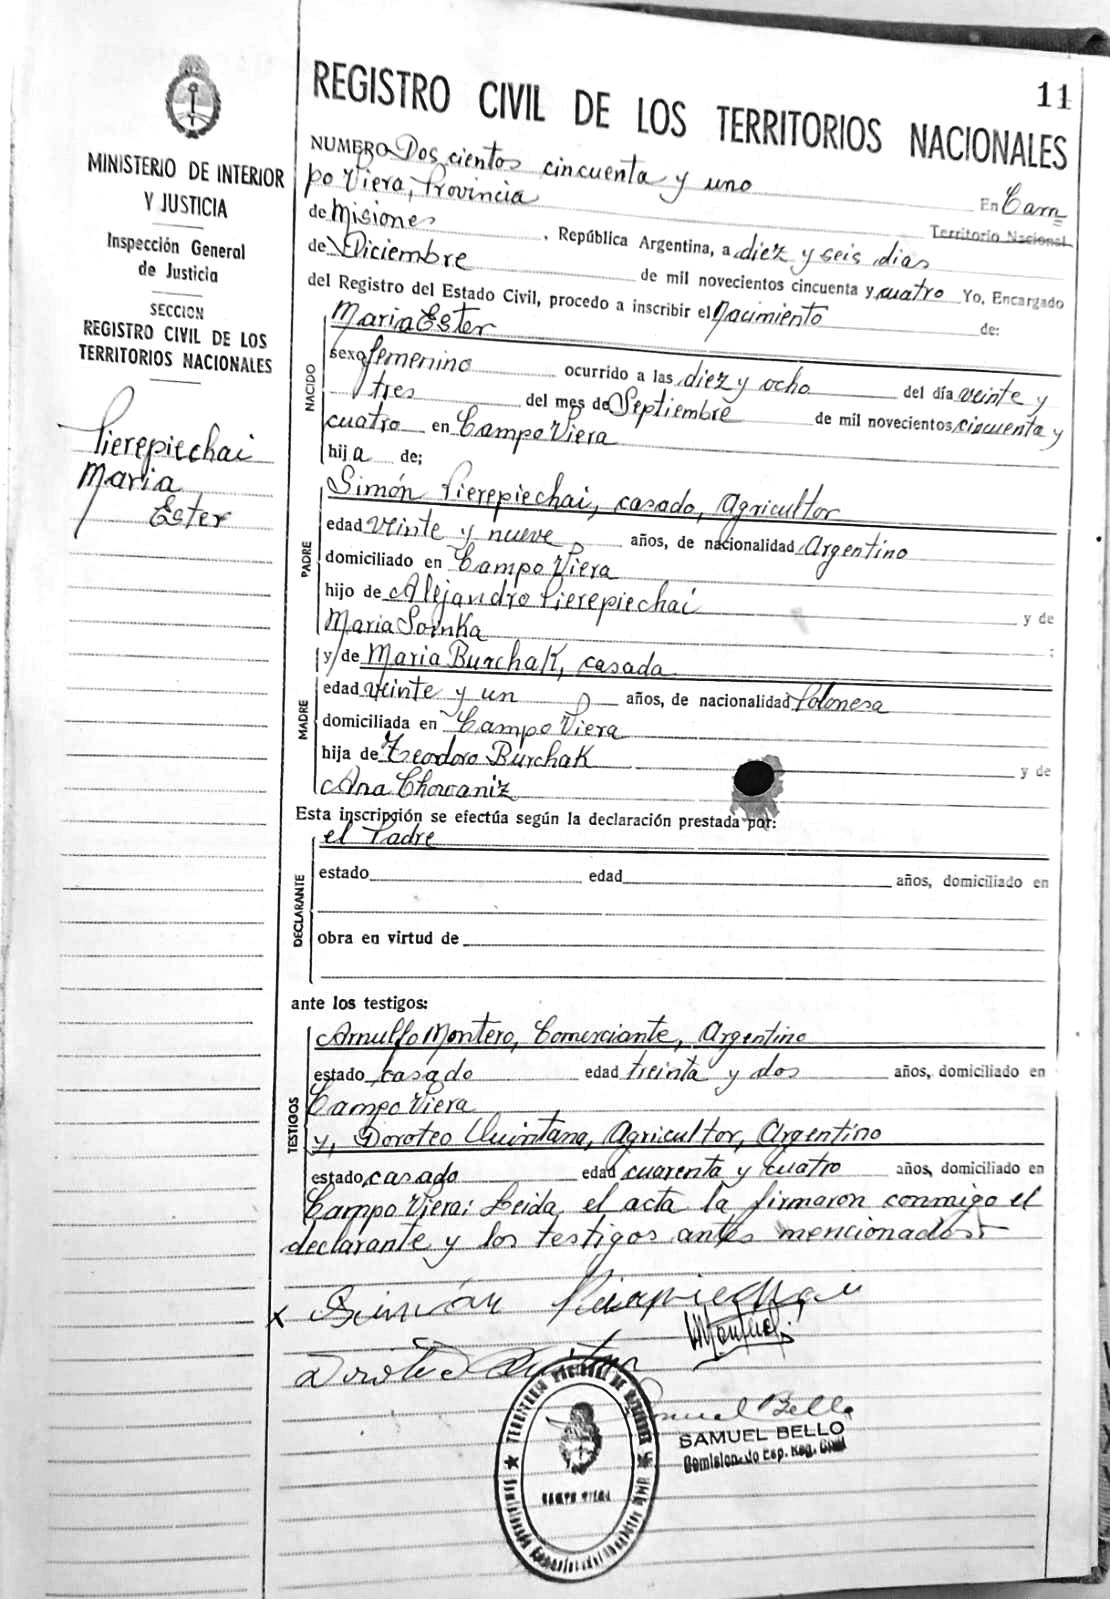 11
REGISTRO CIVIL DE LOS TERRITORIOS NACIONALES
MINISTERIO DE INTERIOR
Y JUSTICIA
Inspección General
de Justicia
SECCION
REGISTRO CIVIL DE LOS
TERRITORIOS NACIONALES
Pierepiechai
Maria
Ester
NUMERO Dos cientos cincuenta y uno En Cam
po Viera, Provincia Territorio Nacional
de Misiones, República Argentina, a diez y seis dias
de Diciembre de mil novecientos cincuenta y cuatro Yo, Encargado
del Registro del Estado Civil, procedo a inscribir el Nacimiento de:
NACIDO
Maria Ester
sexo femenino ocurrido a las diez y ocho del día veinte y
tres del mes de Septiembre de mil novecientos cincuenta y
cuatro en Campo Viera
hija de;
PADRE
Simón Pierepiechai, casado, Agricultor
edad veinte y nueve años, de nacionalidad Argentino
domiciliado en Campo Viera
hijo de Alejandro Pierepiechai y de
Maria Soinka :
MADRE
y/de Maria Burchak, casada
edad veinte y un años, de nacionalidad Polonesa
domiciliada en Campo Viera
hija de Teodoro Burchak y de
Ana Chovaniz
Esta inscripción se efectúa según la declaración prestada por:
DECLARANTE
el Padre
estado edad años, domiciliado en
obra en virtud de
ante los testigos:
TESTIGOS
Arnulfo Montero, Comerciante, Argentino
estado casado edad treinta y dos años, domiciliado en
Campo Viera
y, Doroteo Quintana, Agricultor, Argentino
estado casado edad cuarenta y cuatro años, domiciliado en
Campo Viera; Leida, el acta la firmaron conmigo el
declarante y los testigos antes mencionados
x Simón Pierepiechai
Doroteo Quintana
Samuel Bello
SAMUEL BELLO
Comisionado Esp. Reg. Civil
CAMPO VIERA